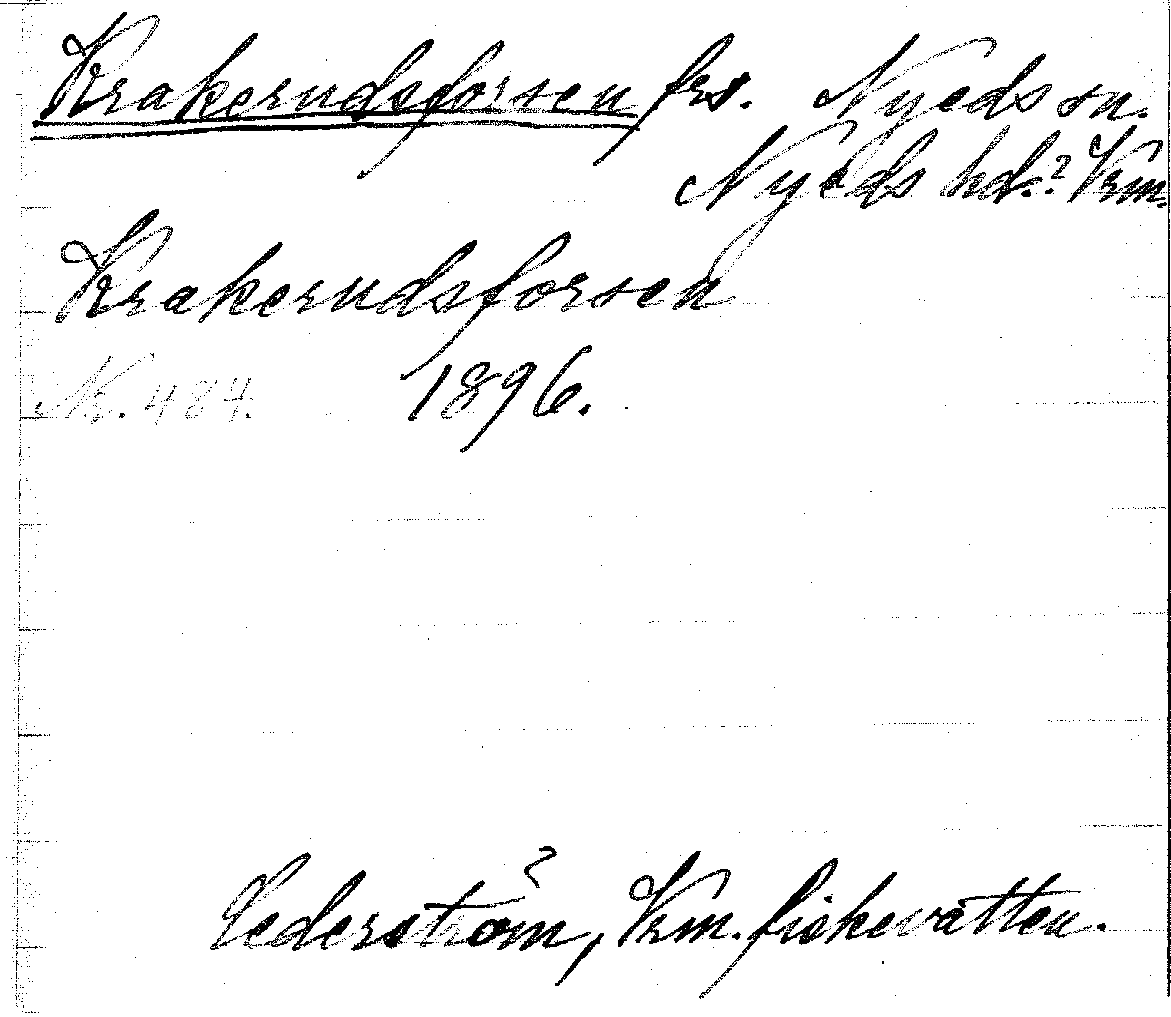 Krakerudsforsen frs. Nyeds sn.
Nyeds hd.? Vrm.
Krakerudsforsen
Nr. 484. 1896.
Cederström, Vrm. fiskevatten.